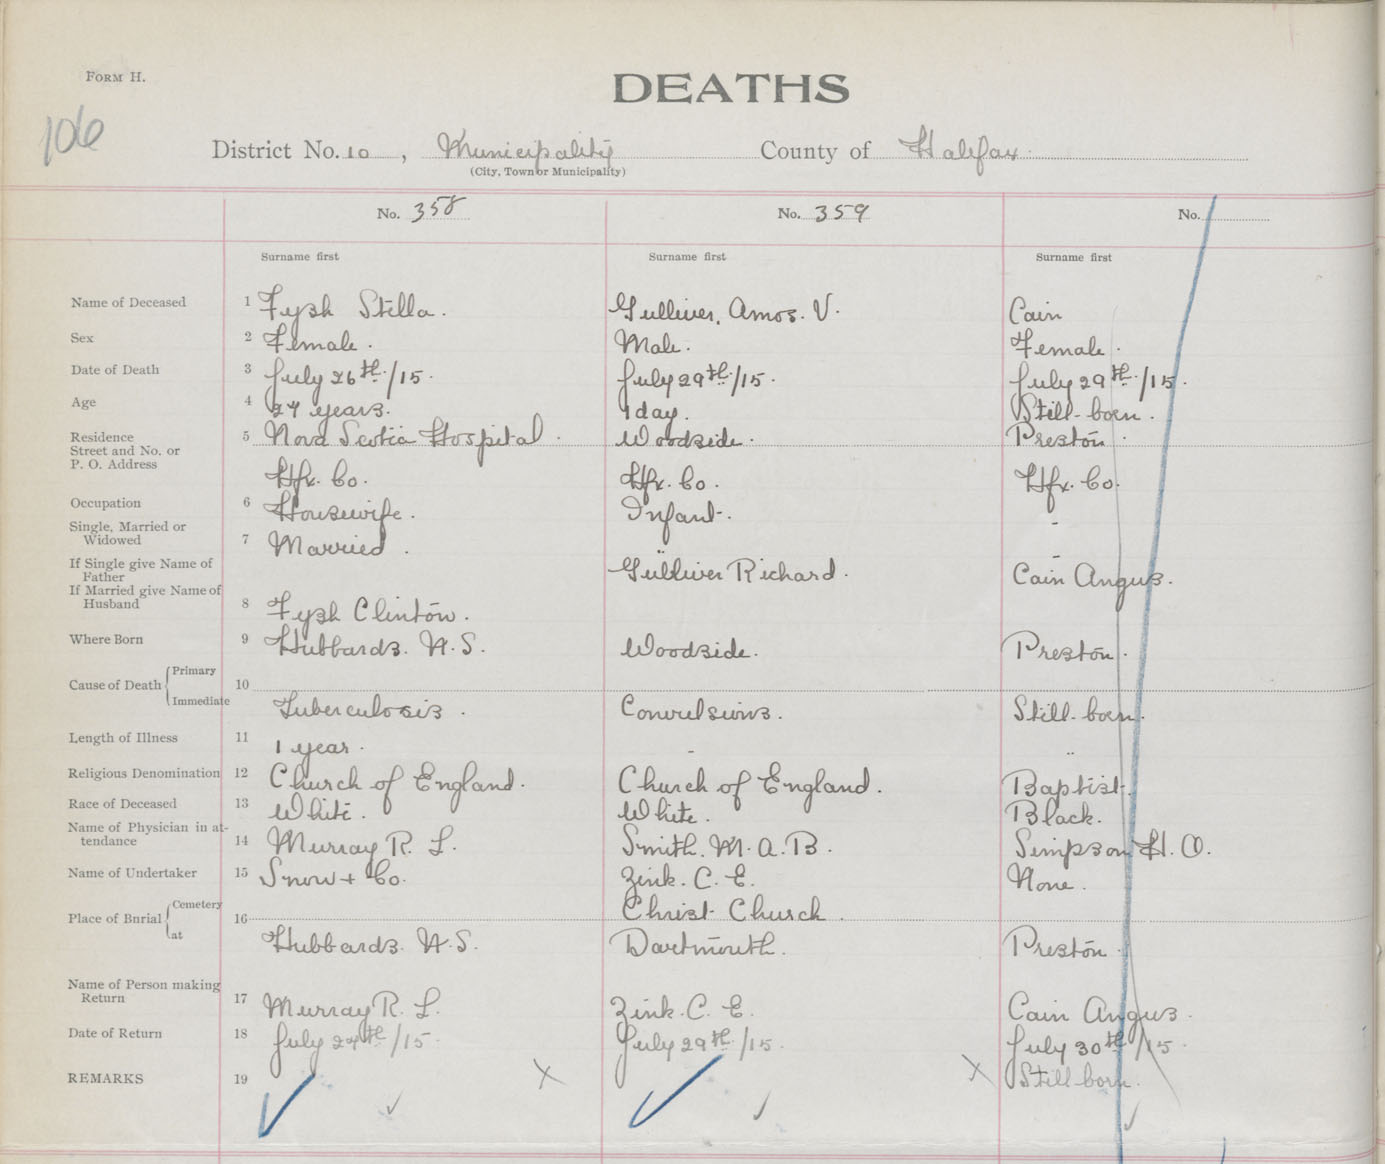 FORM H.
DEATHS
106
District No. 10, Municipality County of Halifax
(City, Town or Municipality)
No. 358 No. 359 No.
Surname first Surname first Surname first
Name of Deceased 1 Fysh Stella. Gulliver, Amos. V. Cain
Sex 2 Female. Male. Female.
Date of Death 3 July 26th/15. July 29th/15. July 29th/15.
Age 4 27 years. 1 day. Still-born.
Residence 5 Nova Scotia Hospital. Woodside. Preston.
Street and No. or
P. O. Address Hfx. Co. Hfx. Co. Hfx. Co.
Occupation 6 Housewife. Infant. -
Single, Married or
Widowed 7 Married. " -
If Single give Name of
Father Gulliver Richard. Cain Angus.
If Married give Name of
Husband 8 Fysh Clinton.
Where Born 9 Hubbards. N.S. Woodside. Preston.
Cause of Death Primary 10
Immediate Tuberculosis. Convulsions. Still-born.
Length of Illness 11 1 year. - ..
Religious Denomination 12 Church of England. Church of England. Baptist.
Race of Deceased 13 White. White. Black.
Name of Physician in at-
tendance 14 Murray R. L. Smith. M. A. B. Simpson H. O.
Name of Undertaker 15 Snow + Co. Zink. C. E. None.
Place of Burial Cemetery 16 Christ Church.
at Hubbards. N.S. Dartmouth. Preston.
Name of Person making
Return 17 Murray R. L. Zink. C. E. Cain Angus.
Date of Return 18 July 27th/15. July 29th/15. July 30th/15.
REMARKS 19 Still born.